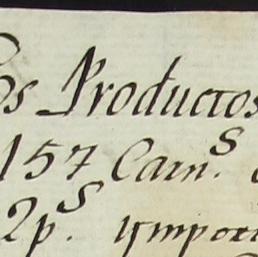 os Productos
157 Carn.s
2p.s ymport